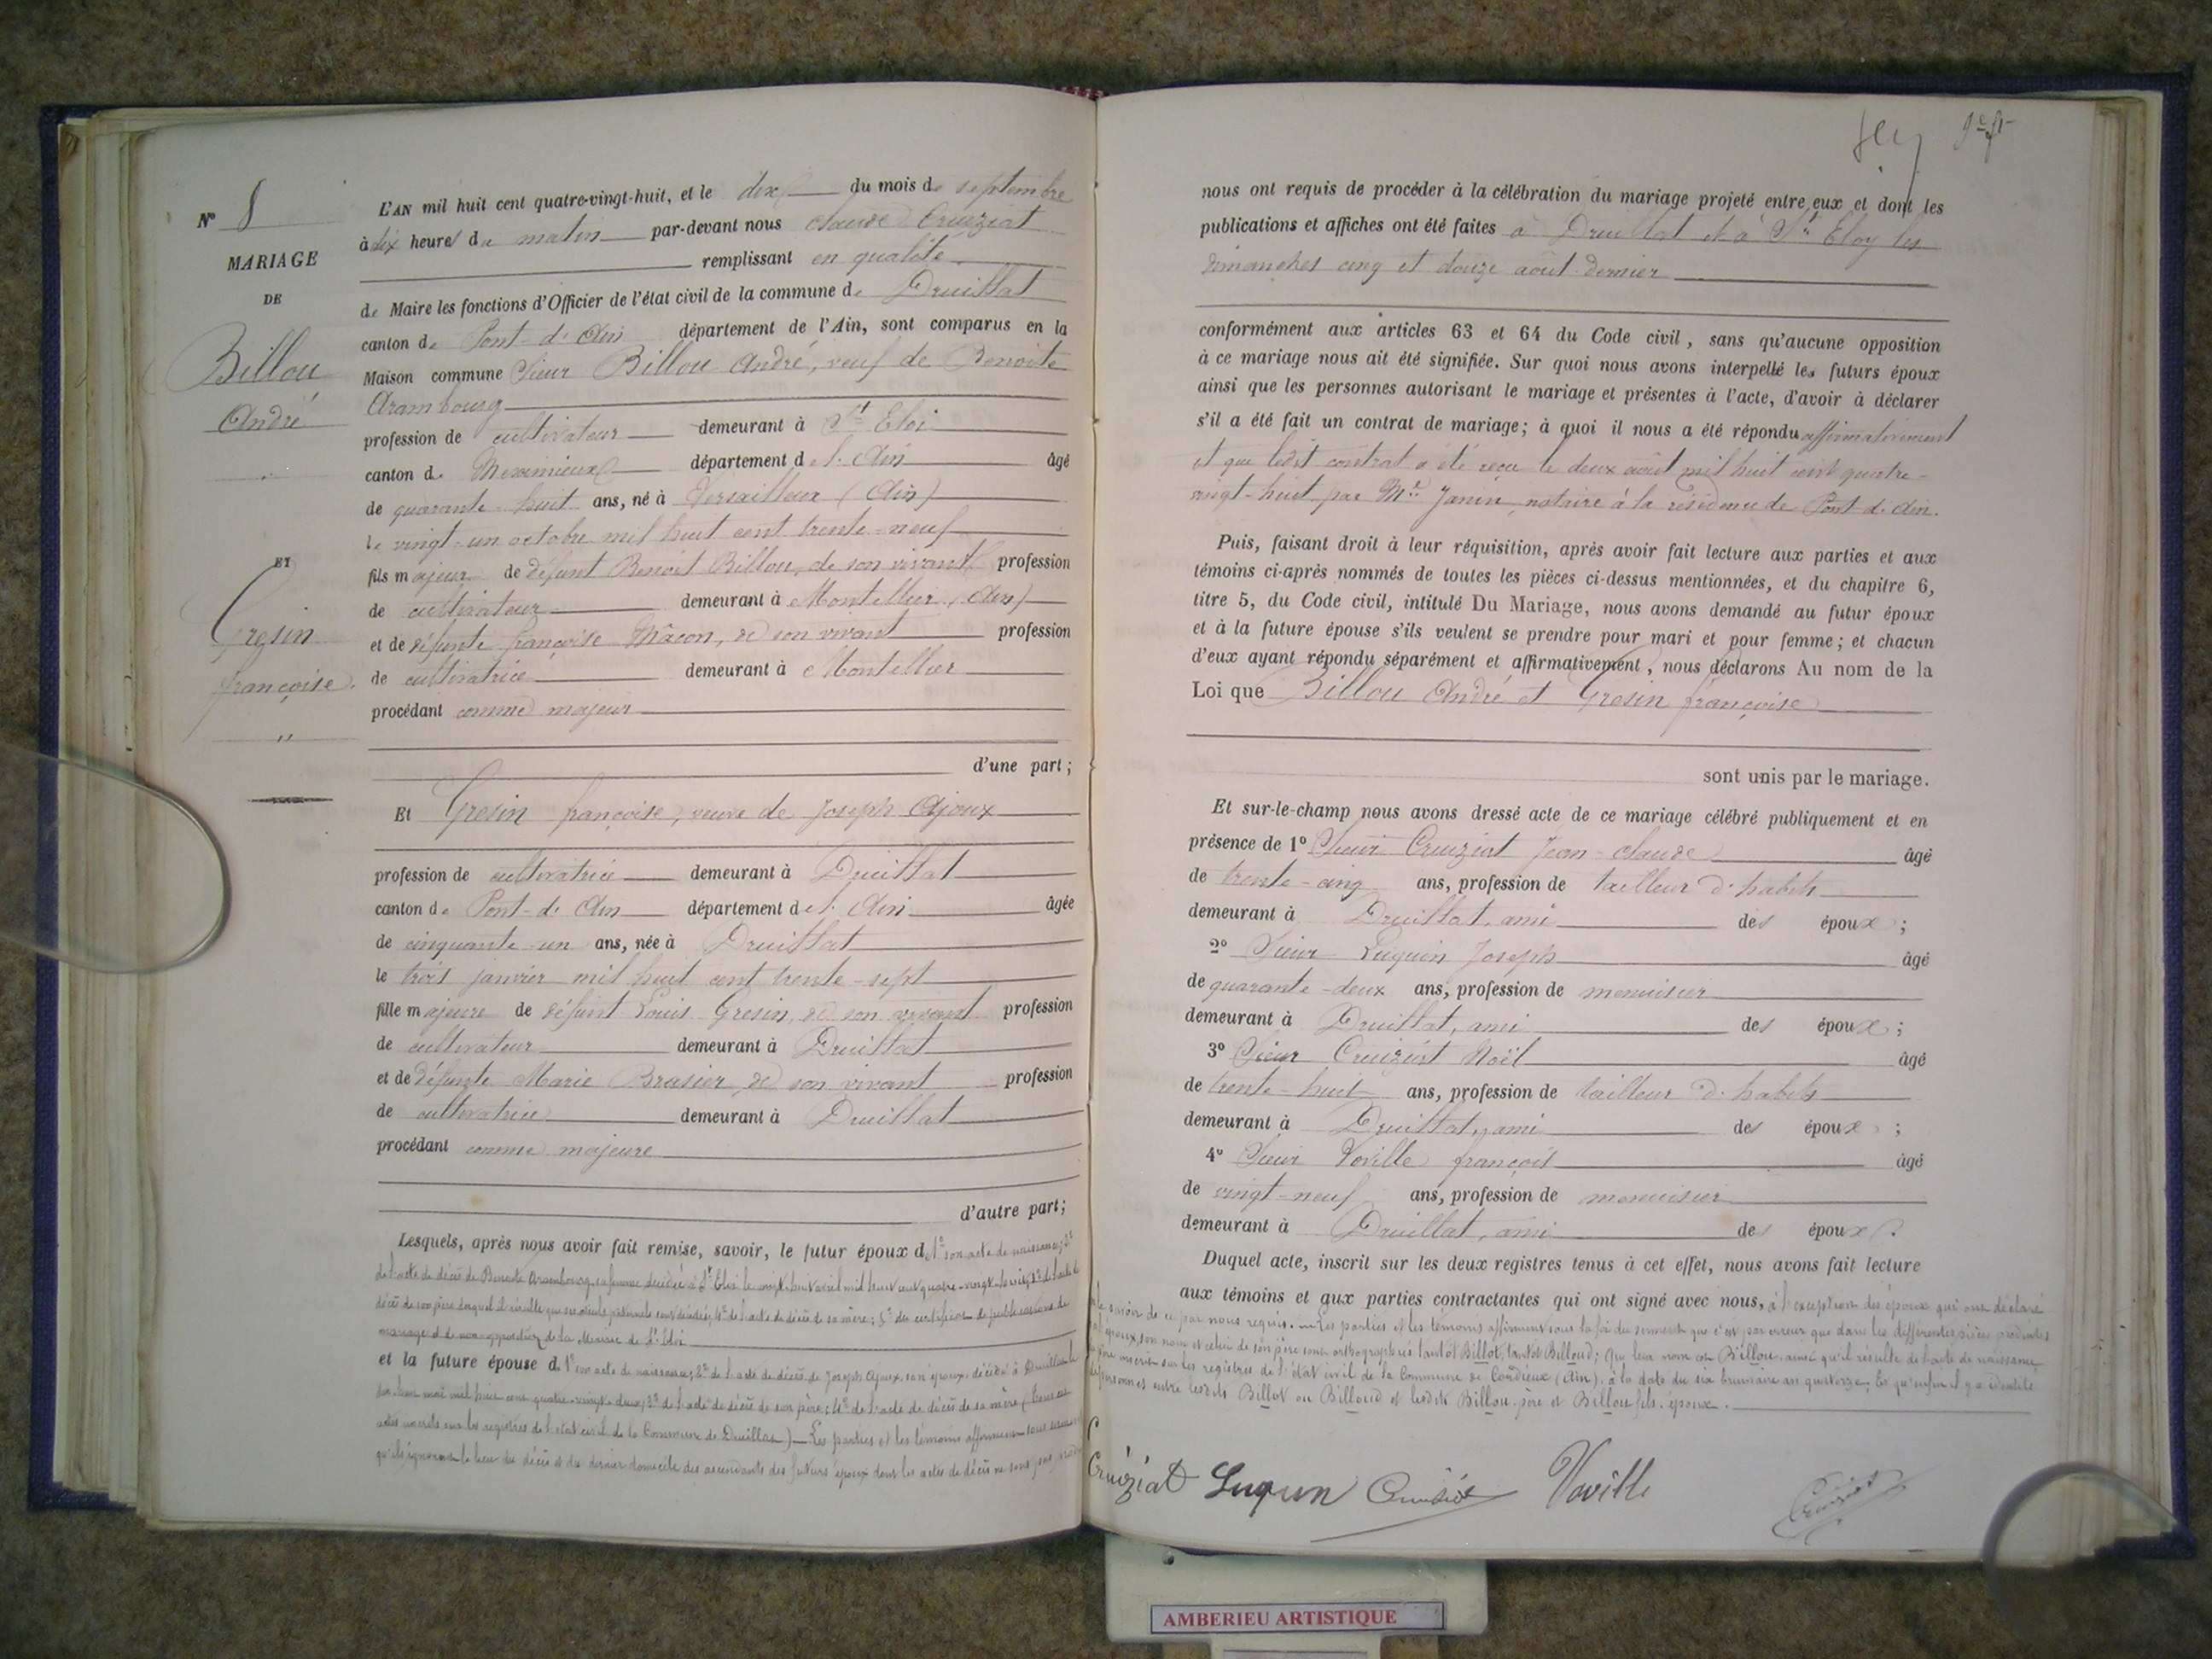 N° 8
MARIAGE
DE
Billou
André
ET
Gresin
françoise.
"
L'AN mil huit cent quatre-vingt-huit, et le dix du mois de septembre
à dix heures du matin par-devant nous Claude Cruiziat
remplissant en qualité
de Maire les fonctions d'Officier de l'état civil de la commune de Druillat
canton de Pont-d'Ain département de l'Ain, sont comparus en la
Maison commune Sieur Billou André, veuf de Benoite
Arambourg
profession de cultivateur demeurant à St Eloi
canton de Meximieux département de l'Ain âgé
de quarante-huit ans, né à Versailleux (Ain)
le vingt-un octobre mil huit cent trente-neuf
fils majeur de défunt Benoit Billou, de son vivant profession
de cultivateur demeurant à Montellier (Ain)
et de défunte françoise Mâcon, de son vivant profession
de cultivatrice demeurant à Montellier
procédant comme majeur
d'une part;
Et Gresin françoise, veuve de Joseph Ajoux
profession de cultivatrice demeurant à Druillat
canton de Pont-d'Ain département de l'Ain âgée
de cinquante-un ans, née à Druillat
le trois janvier mil huit cent trente-sept
fille majeure de défunt Louis Gresin, de son vivant profession
de cultivateur demeurant à Druillat
et de défunte Marie Brasier, de son vivant profession
de cultivatrice demeurant à Druillat
procédant comme majeure
d'autre part;
Lesquels, après nous avoir fait remise, savoir, le futur époux de 1° son acte de naissance; 2°
de l'acte de décès de Benoite Arambourg, sa femme décédée à St Eloi le vingt-huit avril mil huit cent quatre-vingt- 3° de l'acte de
décès de son père duquel il résulte que ses aïeuls paternels sont décédés; 4° de l'acte de décès de sa mère; 5° des certificats de publications de
mariage et de non opposition de la Mairie de St Eloi
et la future épouse de 1° son acte de naissance; 2° de l'acte de décès de Joseph Ajoux, son époux, décédé à Druillat le
mai mil huit cent quatre-vingt-deux; 3° de l'acte de décès de son père; 4° de l'acte de décès de sa mère (tous ces
actes inscrits sur les registres de l'état civil de la Commune de Druillat) Les parties et les témoins affirment sous serment
qu'ils ignorent le lieu du décès et du dernier domicile des ascendants des futurs époux dont les actes de décès ne sont pas
nous ont requis de procéder à la célébration du mariage projeté entre eux et dont les
publications et affiches ont été faites à Druillat et à St Eloy les
dimanches cinq et douze août dernier
conformément aux articles 63 et 64 du Code civil, sans qu'aucune opposition
à ce mariage nous ait été signifiée. Sur quoi nous avons interpellé les futurs époux
ainsi que les personnes autorisant le mariage et présentes à l'acte, d'avoir à déclarer
s'il a été fait un contrat de mariage; à quoi il nous a été répondu affirmativement
et que ledit contrat a été reçu le deux août mil huit cent quatre-
vingt-huit par Me Janin, notaire à la résidence de Pont-d'Ain.
Puis, faisant droit à leur réquisition, après avoir fait lecture aux parties et aux
témoins ci-après nommés de toutes les pièces ci-dessus mentionnées, et du chapitre 6,
titre 5, du Code civil, intitulé Du Mariage, nous avons demandé au futur époux
et à la future épouse s'ils veulent se prendre pour mari et pour femme; et chacun
d'eux ayant répondu séparément et affirmativement, nous déclarons Au nom de la
Loi que Billou André et Gresin françoise
sont unis par le mariage.
Et sur-le-champ nous avons dressé acte de ce mariage célébré publiquement et en
présence de 1° Sieur Cruiziat Jean-Claude âgé
de trente-cinq ans, profession de tailleur d'habits
demeurant à Druillat, ami des époux;
2° Sieur Luquin Joseph âgé
de quarante-deux ans, profession de menuisier
demeurant à Druillat, ami des époux;
3° Sieur Cruiziat Noël âgé
de trente-huit ans, profession de tailleur d'habits
demeurant à Druillat, ami des époux;
4° Sieur Voville françois âgé
de vingt-neuf ans, profession de menuisier
demeurant à Druillat, ami des époux.
Duquel acte, inscrit sur les deux registres tenus à cet effet, nous avons fait lecture
aux témoins et aux parties contractantes qui ont signé avec nous, à l'exception des époux qui ont déclaré
ne le savoir de ce par nous requis. Les parties et les témoins affirment sous la foi du serment que c'est par erreur que dans les différentes pièces produites
époux, son nom et celui de son père sont orthographiés tantôt Billot, tantôt Billoud; Que leur nom est Billou ainsi qu'il résulte de l'acte de naissance
père inscrit sur les registres de l'état civil de la Commune de Cordieux (Ain) à la date du six brumaire an quatorze; Et qu'enfin il y a identité
de personnes entre lesdits Billot ou Billoud et lesdits Billou père et Billou fils, époux.
Cruiziat Luquin Cruiziat Voville Cruiziat
AMBERIEU ARTISTIQUE